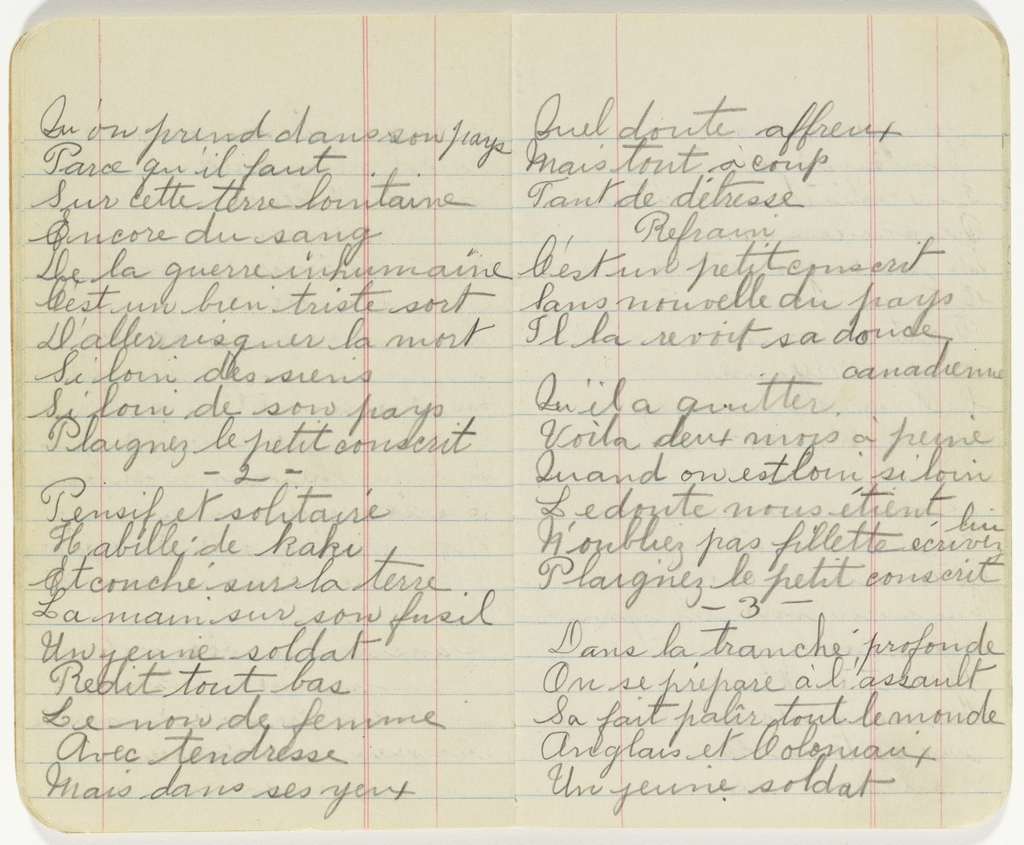 Qu'on prend dans son pays
Parce qu'il faut
Sur cette terre lointaine
Encore du sang
De la guerre inhumaine
C'est un bien triste sort
D'aller risquer la mort
Si loin des siens
Si loin de son pays
Plaignez le petit conscrit
- 2 -
Pensif et solitaire
Habillé de kaki
Et couché sur la terre
La main sur son fusil
Un jeune soldat
Redit tout bas
Le nom de femme
Avec tendresse
Mais dans ses yeux
Quel doute affreux
Mais tout à coup
Tant de détresse
Refrain
C'est un petit conscrit
Sans nouvelle du pays
Il la revoit sa douce
canadienne
Qu'il a quitter
Voila deux mois à peine
Quand on est loin si loin
Le doute nous étient
N'oubliez pas fillette écrivez lui
Plaignez le petit conscrit
- 3 -
Dans la tranché profonde
On se prépare à l'assault
Sa fait palir tout le monde
Anglais et Coloniaux
Un jeune soldat